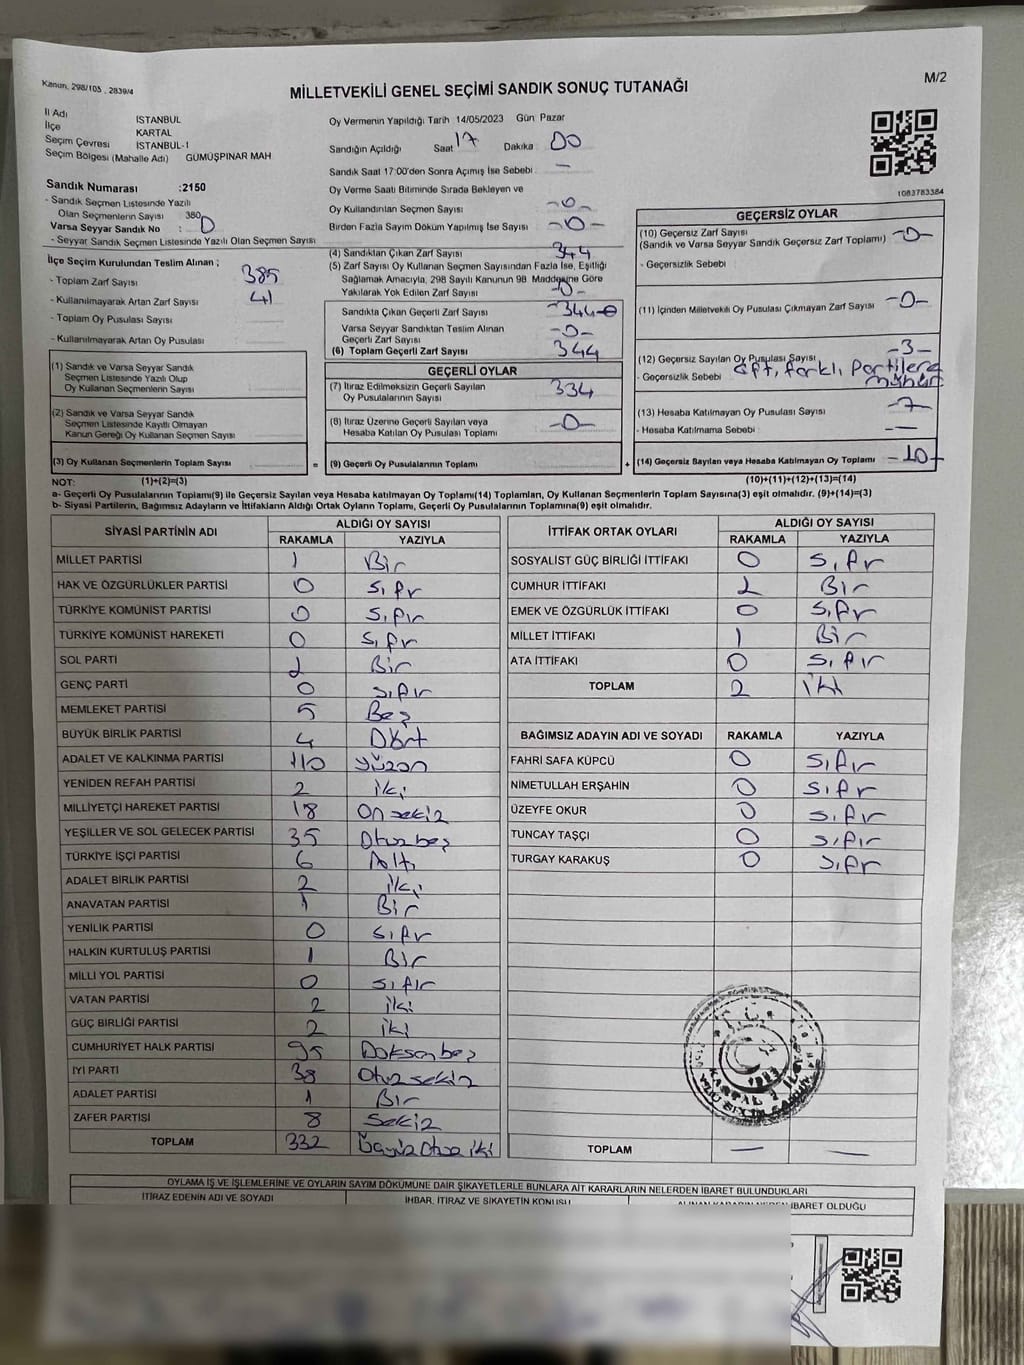 Kanun, 298/103 , 2839/4
M/2
MİLLETVEKİLİ GENEL SEÇİMİ SANDIK SONUÇ TUTANAĞI
İl Adı İSTANBUL
İlçe KARTAL
Seçim Çevresi İSTANBUL-1
Seçim Bölgesi (Mahalle Adı) GÜMÜŞPINAR MAH
Sandık Numarası :2150
- Sandık Seçmen Listesinde Yazılı
Olan Seçmenlerin Sayısı 380
Varsa Seyyar Sandık No : 0
- Seyyar Sandık Seçmen Listesinde Yazılı Olan Seçmen Sayısı
İlçe Seçim Kurulundan Teslim Alınan ;
- Toplam Zarf Sayısı 385
- Kullanılmayarak Artan Zarf Sayısı 41
- Toplam Oy Pusulası Sayısı
- Kullanılmayarak Artan Oy Pusulası
(1) Sandık ve Varsa Seyyar Sandık
Seçmen Listesinde Yazılı Olup
Oy Kullanan Seçmenlerin Sayısı
(2) Sandık ve Varsa Seyyar Sandık
Seçmen Listesinde Kayıtlı Olmayan
Kanun Gereği Oy Kullanan Seçmen Sayısı
(3) Oy Kullanan Seçmenlerin Toplam Sayısı
Oy Vermenin Yapıldığı Tarih 14/05/2023 Gün Pazar
Sandığın Açıldığı Saat 17 Dakika 00
Sandık Saat 17:00'den Sonra Açımış İse Sebebi : -
Oy Verme Saati Bitiminde Sırada Bekleyen ve
Oy Kullandırılan Seçmen Sayısı -0-
Birden Fazla Sayım Döküm Yapılmış İse Sayısı -0-
(4) Sandıktan Çıkan Zarf Sayısı 344
(5) Zarf Sayısı Oy Kullanan Seçmen Sayısından Fazla İse, Eşitliği
Sağlamak Amacıyla, 298 Sayılı Kanunun 98. Maddesine Göre
Yakılarak Yok Edilen Zarf Sayısı -0-
Sandıkta Çıkan Geçerli Zarf Sayısı -344-
Varsa Seyyar Sandıktan Teslim Alınan
Geçerli Zarf Sayısı -0-
(6) Toplam Geçerli Zarf Sayısı 344
GEÇERLİ OYLAR
(7) İtiraz Edilmeksizin Geçerli Sayılan
Oy Pusulalarının Sayısı 334
(8) İtiraz Üzerine Geçerli Sayılan veya
Hesaba Katılan Oy Pusulası Toplamı -0-
= (9) Geçerli Oy Pusulalarının Toplamı
1083783384
GEÇERSİZ OYLAR
(10) Geçersiz Zarf Sayısı
(Sandık ve Varsa Seyyar Sandık Geçersiz Zarf Toplamı) -0-
- Geçersizlik Sebebi
(11) İçinden Milletvekili Oy Pusulası Çıkmayan Zarf Sayısı -0-
(12) Geçersiz Sayılan Oy Pusulası Sayısı -3-
- Geçersizlik Sebebi Çift, farklı Partilere
mühür
(13) Hesaba Katılmayan Oy Pusulası Sayısı -7-
- Hesaba Katılmama Sebebi -
+ (14) Geçersiz Sayılan veya Hesaba Katılmayan Oy Toplamı -10-
NOT: (1)+(2)=(3) (10)+(11)+(12)+(13)=(14)
a- Geçerli Oy Pusulalarının Toplamı(9) ile Geçersiz Sayılan veya Hesaba katılmayan Oy Toplamı(14) Toplamları, Oy Kullanan Seçmenlerin Toplam Sayısına(3) eşit olmalıdır. (9)+(14)=(3)
b- Siyasi Partilerin, Bağımsız Adayların ve İttifakların Aldığı Ortak Oyların Toplamı, Geçerli Oy Pusulalarının Toplamına(9) eşit olmalıdır.
SİYASİ PARTİNİN ADI ALDIĞI OY SAYISI
RAKAMLA YAZIYLA
MİLLET PARTİSİ 1 Bir
HAK VE ÖZGÜRLÜKLER PARTİSİ 0 sıfır
TÜRKİYE KOMÜNİST PARTİSİ 0 sıfır
TÜRKİYE KOMÜNİST HAREKETİ 0 sıfır
SOL PARTİ 1 Bir
GENÇ PARTİ 0 sıfır
MEMLEKET PARTİSİ 5 Beş
BÜYÜK BİRLİK PARTİSİ 4 Dört
ADALET VE KALKINMA PARTİSİ 110 yüzon
YENİDEN REFAH PARTİSİ 2 iki
MİLLİYETÇİ HAREKET PARTİSİ 18 Onsekiz
YEŞİLLER VE SOL GELECEK PARTİSİ 35 Otuzbeş
TÜRKİYE İŞÇİ PARTİSİ 6 Altı
ADALET BİRLİK PARTİSİ 2 iki
ANAVATAN PARTİSİ 1 Bir
YENİLİK PARTİSİ 0 sıfır
HALKIN KURTULUŞ PARTİSİ 1 Bir
MİLLİ YOL PARTİSİ 0 sıfır
VATAN PARTİSİ 2 iki
GÜÇ BİRLİĞİ PARTİSİ 2 iki
CUMHURİYET HALK PARTİSİ 95 Doksanbeş
İYİ PARTİ 38 Otuzsekiz
ADALET PARTİSİ 1 Bir
ZAFER PARTİSİ 8 Sekiz
TOPLAM 332 Üçyüz Otuz iki
İTTİFAK ORTAK OYLARI ALDIĞI OY SAYISI
RAKAMLA YAZIYLA
SOSYALİST GÜÇ BİRLİĞİ İTTİFAKI 0 sıfır
CUMHUR İTTİFAKI 1 Bir
EMEK VE ÖZGÜRLÜK İTTİFAKI 0 sıfır
MİLLET İTTİFAKI 1 Bir
ATA İTTİFAKI 0 sıfır
TOPLAM 2 iki
BAĞIMSIZ ADAYIN ADI VE SOYADI RAKAMLA YAZIYLA
FAHRİ SAFA KÜPCÜ 0 sıfır
NİMETULLAH ERŞAHİN 0 sıfır
ÜZEYFE OKUR 0 sıfır
TUNCAY TAŞÇI 0 sıfır
TURGAY KARAKUŞ 0 sıfır
TOPLAM - -
OYLAMA İŞ VE İŞLEMLERİNE VE OYLARIN SAYIM DÖKÜMÜNE DAİR ŞİKAYETLERLE BUNLARA AİT KARARLARIN NELERDEN İBARET BULUNDUKLARI
İTİRAZ EDENİN ADI VE SOYADI İHBAR, İTİRAZ VE ŞİKAYETİN KONUSU İBARET OLDUĞU